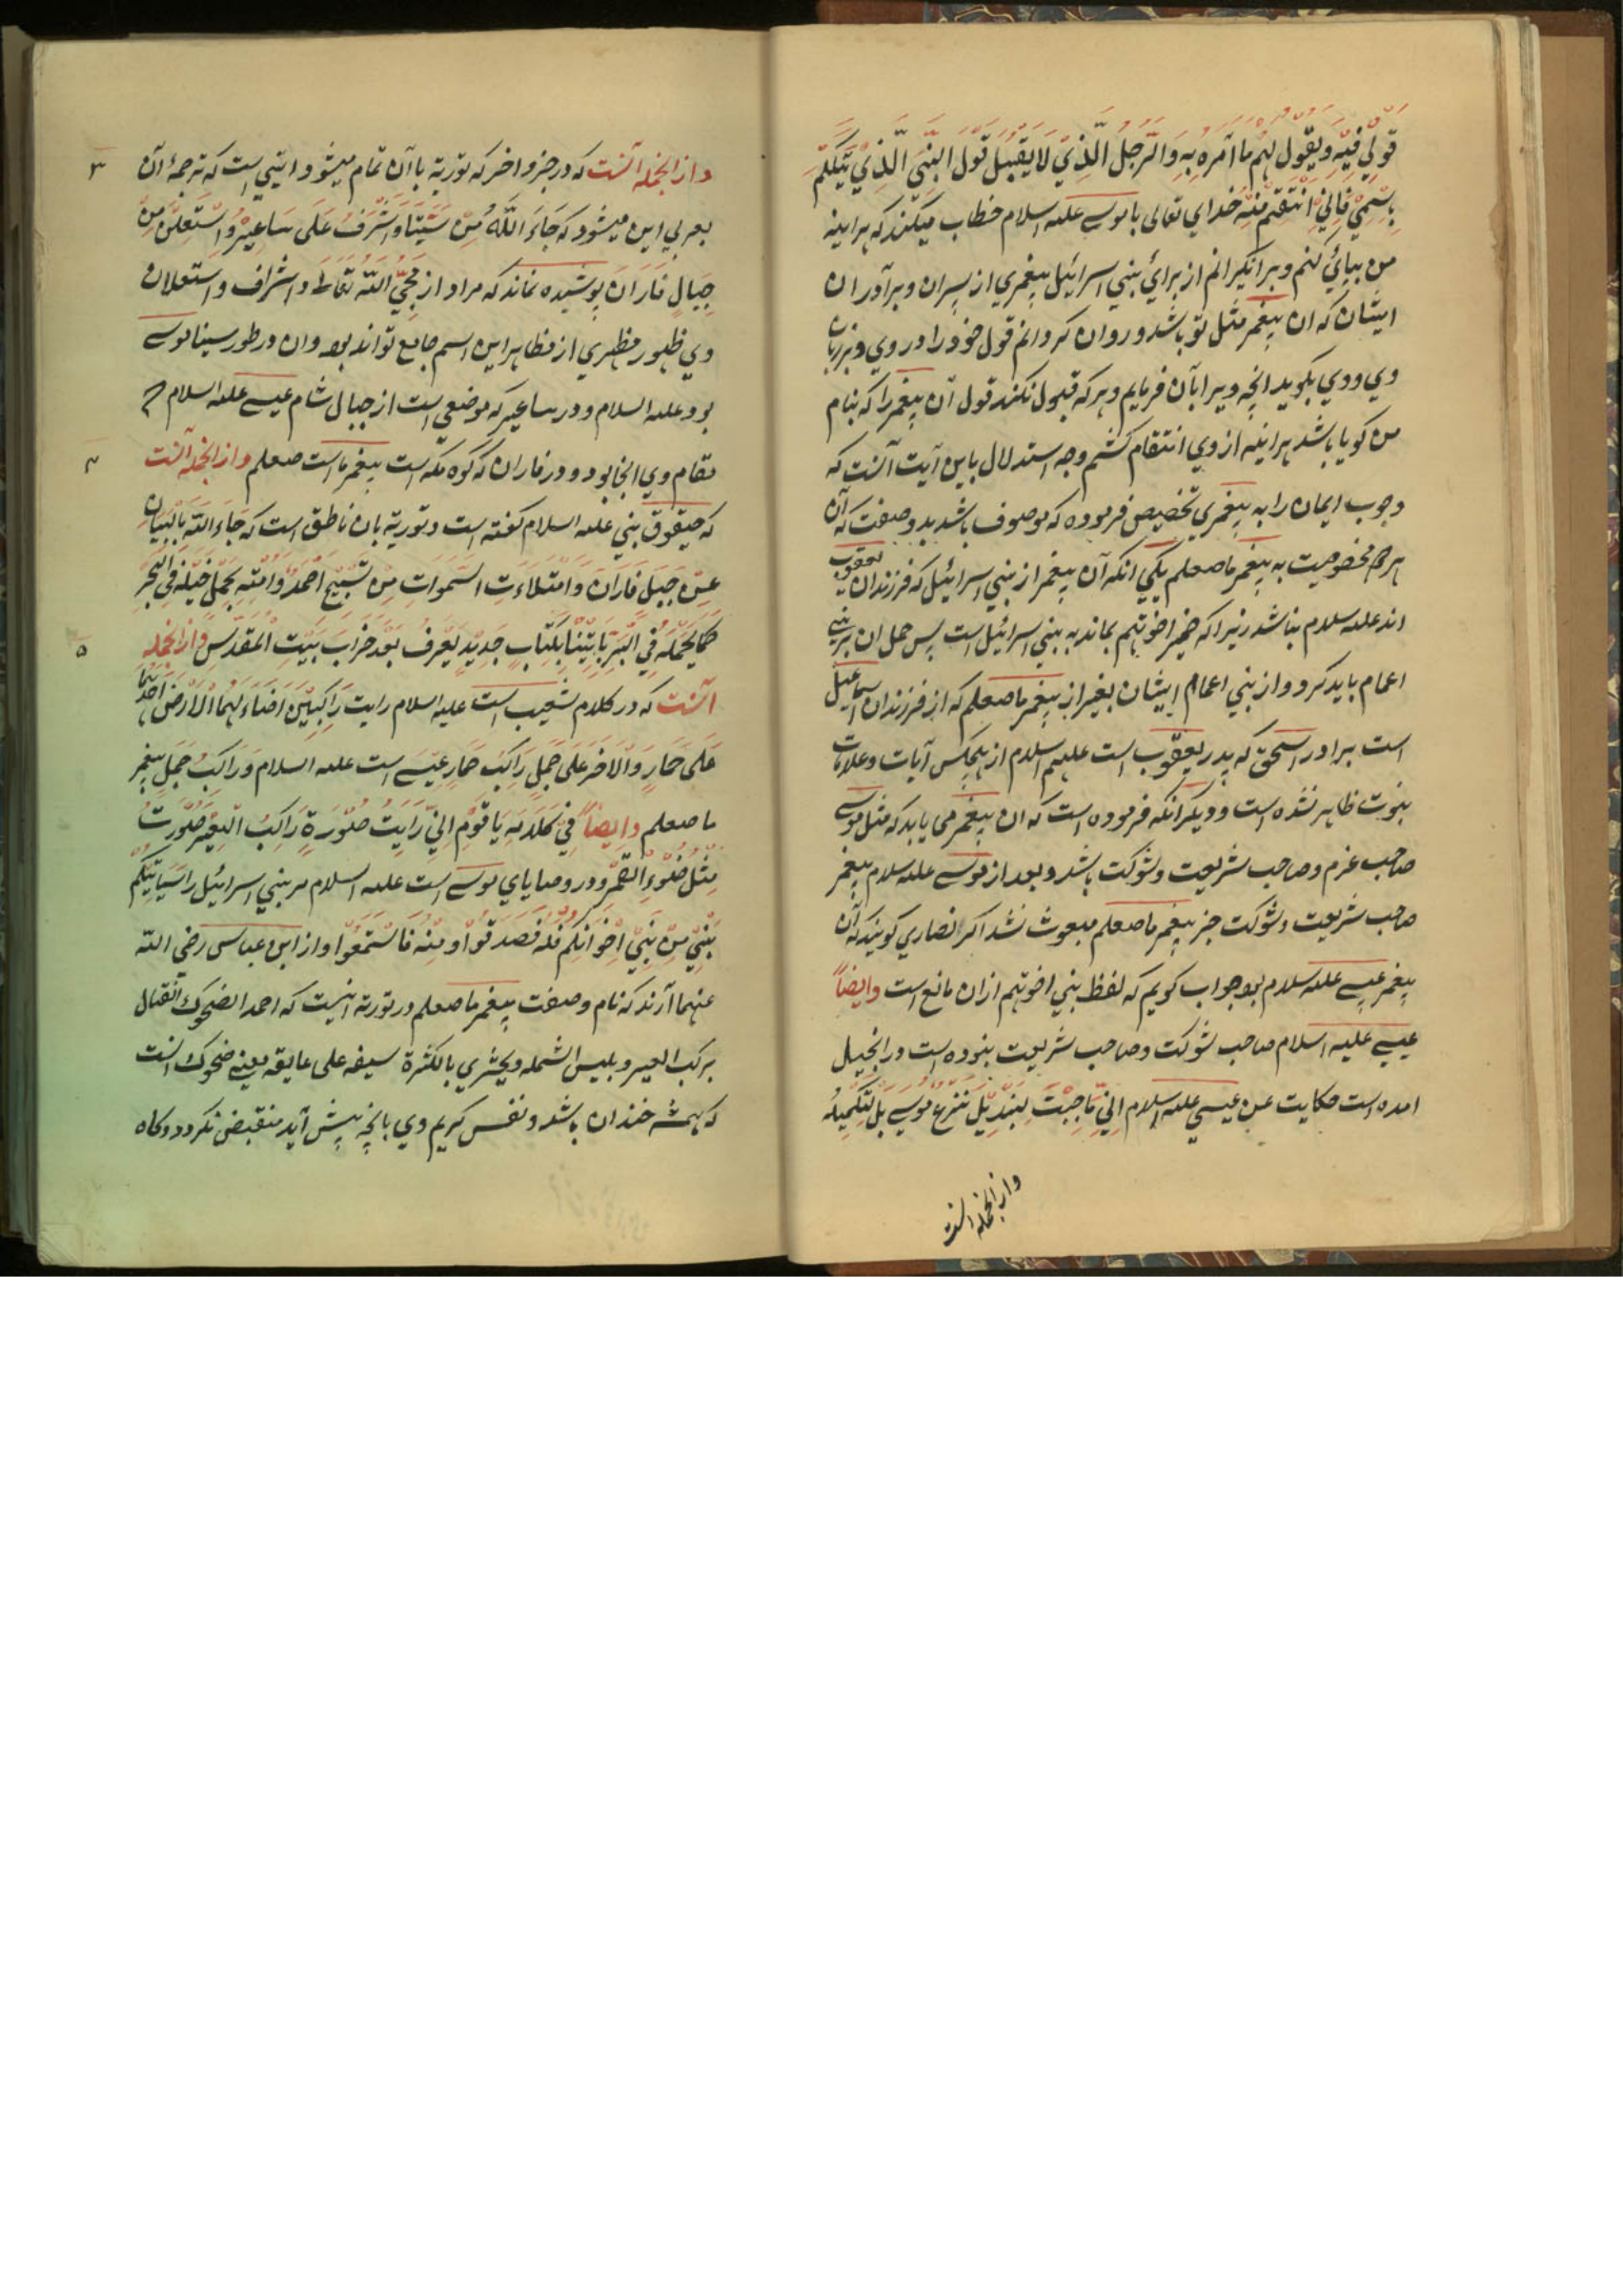 قَوْلِي فِيهِ وَيَقُولُ لَهُمْ مَا آمُرُهُ بِهِ وَالرَّجُلُ الَّذِي لَا يَقْبَلُ قَوْلَ النَّبِيِّ الَّذِي يَتَكَلَّمُ
بِاسْمِي فَإِنِّي أَنْتَقِمُ مِنْهُ خدای تعالی با موسی علیه السلام خطاب میکند که هراینه
من بپای کنم و برانکیزانم از برای بنی اسرائیل پیغمبری از پسران و برآوران
ایشان که ان پیغمبر مثل تو باشد و روان کردانم قول خود را در وی و بر زبان
وی و وی بکوید انچه ویرا بآن فرمایم و هرکه قبول نکند قول آن پیغمبر را که بنام
من کویا باشد هراینه از وی انتقام کشم وجه استدلال باین آیت آنست که
وجوب ایمان را به پیغمبری تخصیص فرموده که موصوف باشد بدو صفت که آن
هردو مخصوصیت به پیغمبر ما صعلم یکی انکه آن پیغمبر از بنی اسرائیل که فرزندان یعقوب
اند علیه سلام نباشد زیرا که ضمیر اخوتهم بماند به بنی اسرائیل است پس حمل ان بر بنی
اعمام باید کرد و از بنی اعمام ایشان بغیر از پیغمبر ما صعلم که از فرزندان اسماعیل
است برادر اسحق که پدر یعقوب است علیهم السلام از هیچکس آیات و علامات
نبوت ظاهر نشده است و دیکر انکه فرموده است که ان پیغمبر می باید که مثل موسی
صاحب عزم و صاحب شریعت و شوکت باشد و بعد از موسی علیه سلام پیغمبر
صاحب شریعت و شوکت جز پیغمبر ما صعلم مبعوث نشد اکر نصاری کویند که آن
پیغمبر عیسی علیه سلام بود جواب کویم که لفظ بنی اخوتهم ازان مانع است وایضاً
عیسی علیه السلام صاحب شوکت و صاحب شریعت نبوده است در انجیل
امده است حکایت عن عیسی علیه السلام اِنِّی مَا جِئْتُ لِتَبْدِیلِ شَرْعِ مُوسی بَلْ لِتَکْمِیلِه
وازانجمله انست
وازانجمله آنست که در جزو اخر که توریة باآن تمام میشود ایتی است که ترجمهٔ آن ٣
بعربی این میشود که جَاءَ اللّٰهُ مِنْ سَیْنَا وَاَشْرَفَ عَلَی سَاعِیْرَ وَاسْتَعْلَنَ مِنْ
جِبَالِ فَارَانَ پوشیده نماند که مراد از مجیّ اللّه تعالی و اشراف و استعلان
وی ظهور مظهری از مظاهر این اسم جامع تواند بود وان در طور سینا موسی
بود علیه السلام و در ساعیر که موضعی است از جبال شام عیسی علیه السلام که
مقام وی انجا بود و در فاران که کوه مکه است پیغمبر ماست صعلم وازانجمله آنست ٤
که حیقوق نبی علیه السلام کفته است و توریة بان ناطق است که جَاءَ اللّٰهُ بِالْبَیَانِ
عن جَبَلِ فَارَانَ وَامْتَلَاءَتِ السَّمٰوَاتُ مِنْ تَسْبِیحِ اَحْمَدَ وَاُمَّتِهِ یَحْمِلُ خَیْلَهُ فِی الْبَحْرِ
کَمَا یَحْمِلُهُ فِی الْبَرِّ یَاتِیْنَا بِکِتَابٍ جَدِیْدٍ یُعْرَفُ بَعْدَ خَرَابِ بَیْتِ الْمُقَدَّسِ وازانجمله ٥
آنست که در کلام شعیب است علیه السلام رایت رَاکِبَیْنِ اَضَاءَ لَهُمَا الْاَرْضُ اَحَدُهُمَا
عَلَی حِمَارٍ وَالْاَخَرُ عَلَی جَمَلٍ رَاکِبُ حِمَار عیسی است علیه السلام وَرَاکِبُ جَمَل پیغمبر
ما صعلم وایضاً فِی کَلَامِهِ یَا قَوْمِ اِنِّی رَایْتُ صُوْرَةَ رَاکِبُ الْبَعِیْرِ صُوْرَتُ
مِثْلُ ضَوْءِ الْقَمَرِ و در وصایای موسی است علیه السلام مر بنی اسرائیل را سَیَاتِیْکُمْ
نَبِیٌّ مِنْ بَنِی اِخْوَانِکُمْ فَلَهُ فَصَدِّقُوْا وَمِنْهُ فَاسْتَمِعُوْا و از ابن عباس رضی اللّه
عنهما آرند که نام و صفت پیغمبر ما صعلم در توریة اینست که احمد الضحوک القتال
یرکب البعیر و یلبس الشمله ویجتزی بالکسرة سیفه علی عاتقه یعنی ضحوک انست
که همیشه خندان باشد و نفس کریم وی بانچه پیش آید منقبض نکردد و کاه